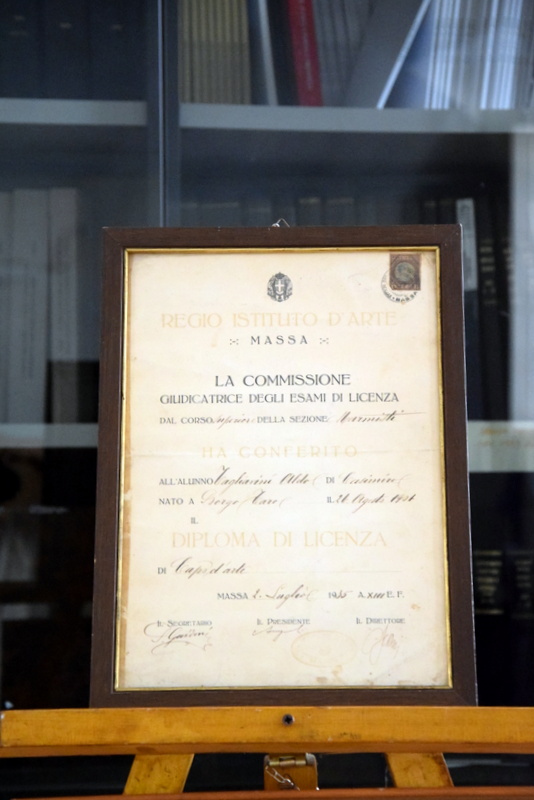 REGIO ISTITUTO D'ARTE
MASSA
LA COMMISSIONE
GIUDICATRICE DEGLI ESAMI DI LICENZA
DAL CORSO superiore DELLA SEZIONE: Marmisti
HA CONFERITO
ALL'ALUNNO Tagliavini Aldo DI Casimiro
NATO A Borgo Taro IL 26 Agosto
IL
DIPLOMA DI LICENZA
DI Capi d'arte
MASSA 2 Luglio 1935 A. XIII E. F.
IL SEGRETARIO IL PRESIDENTE IL DIRETTORE